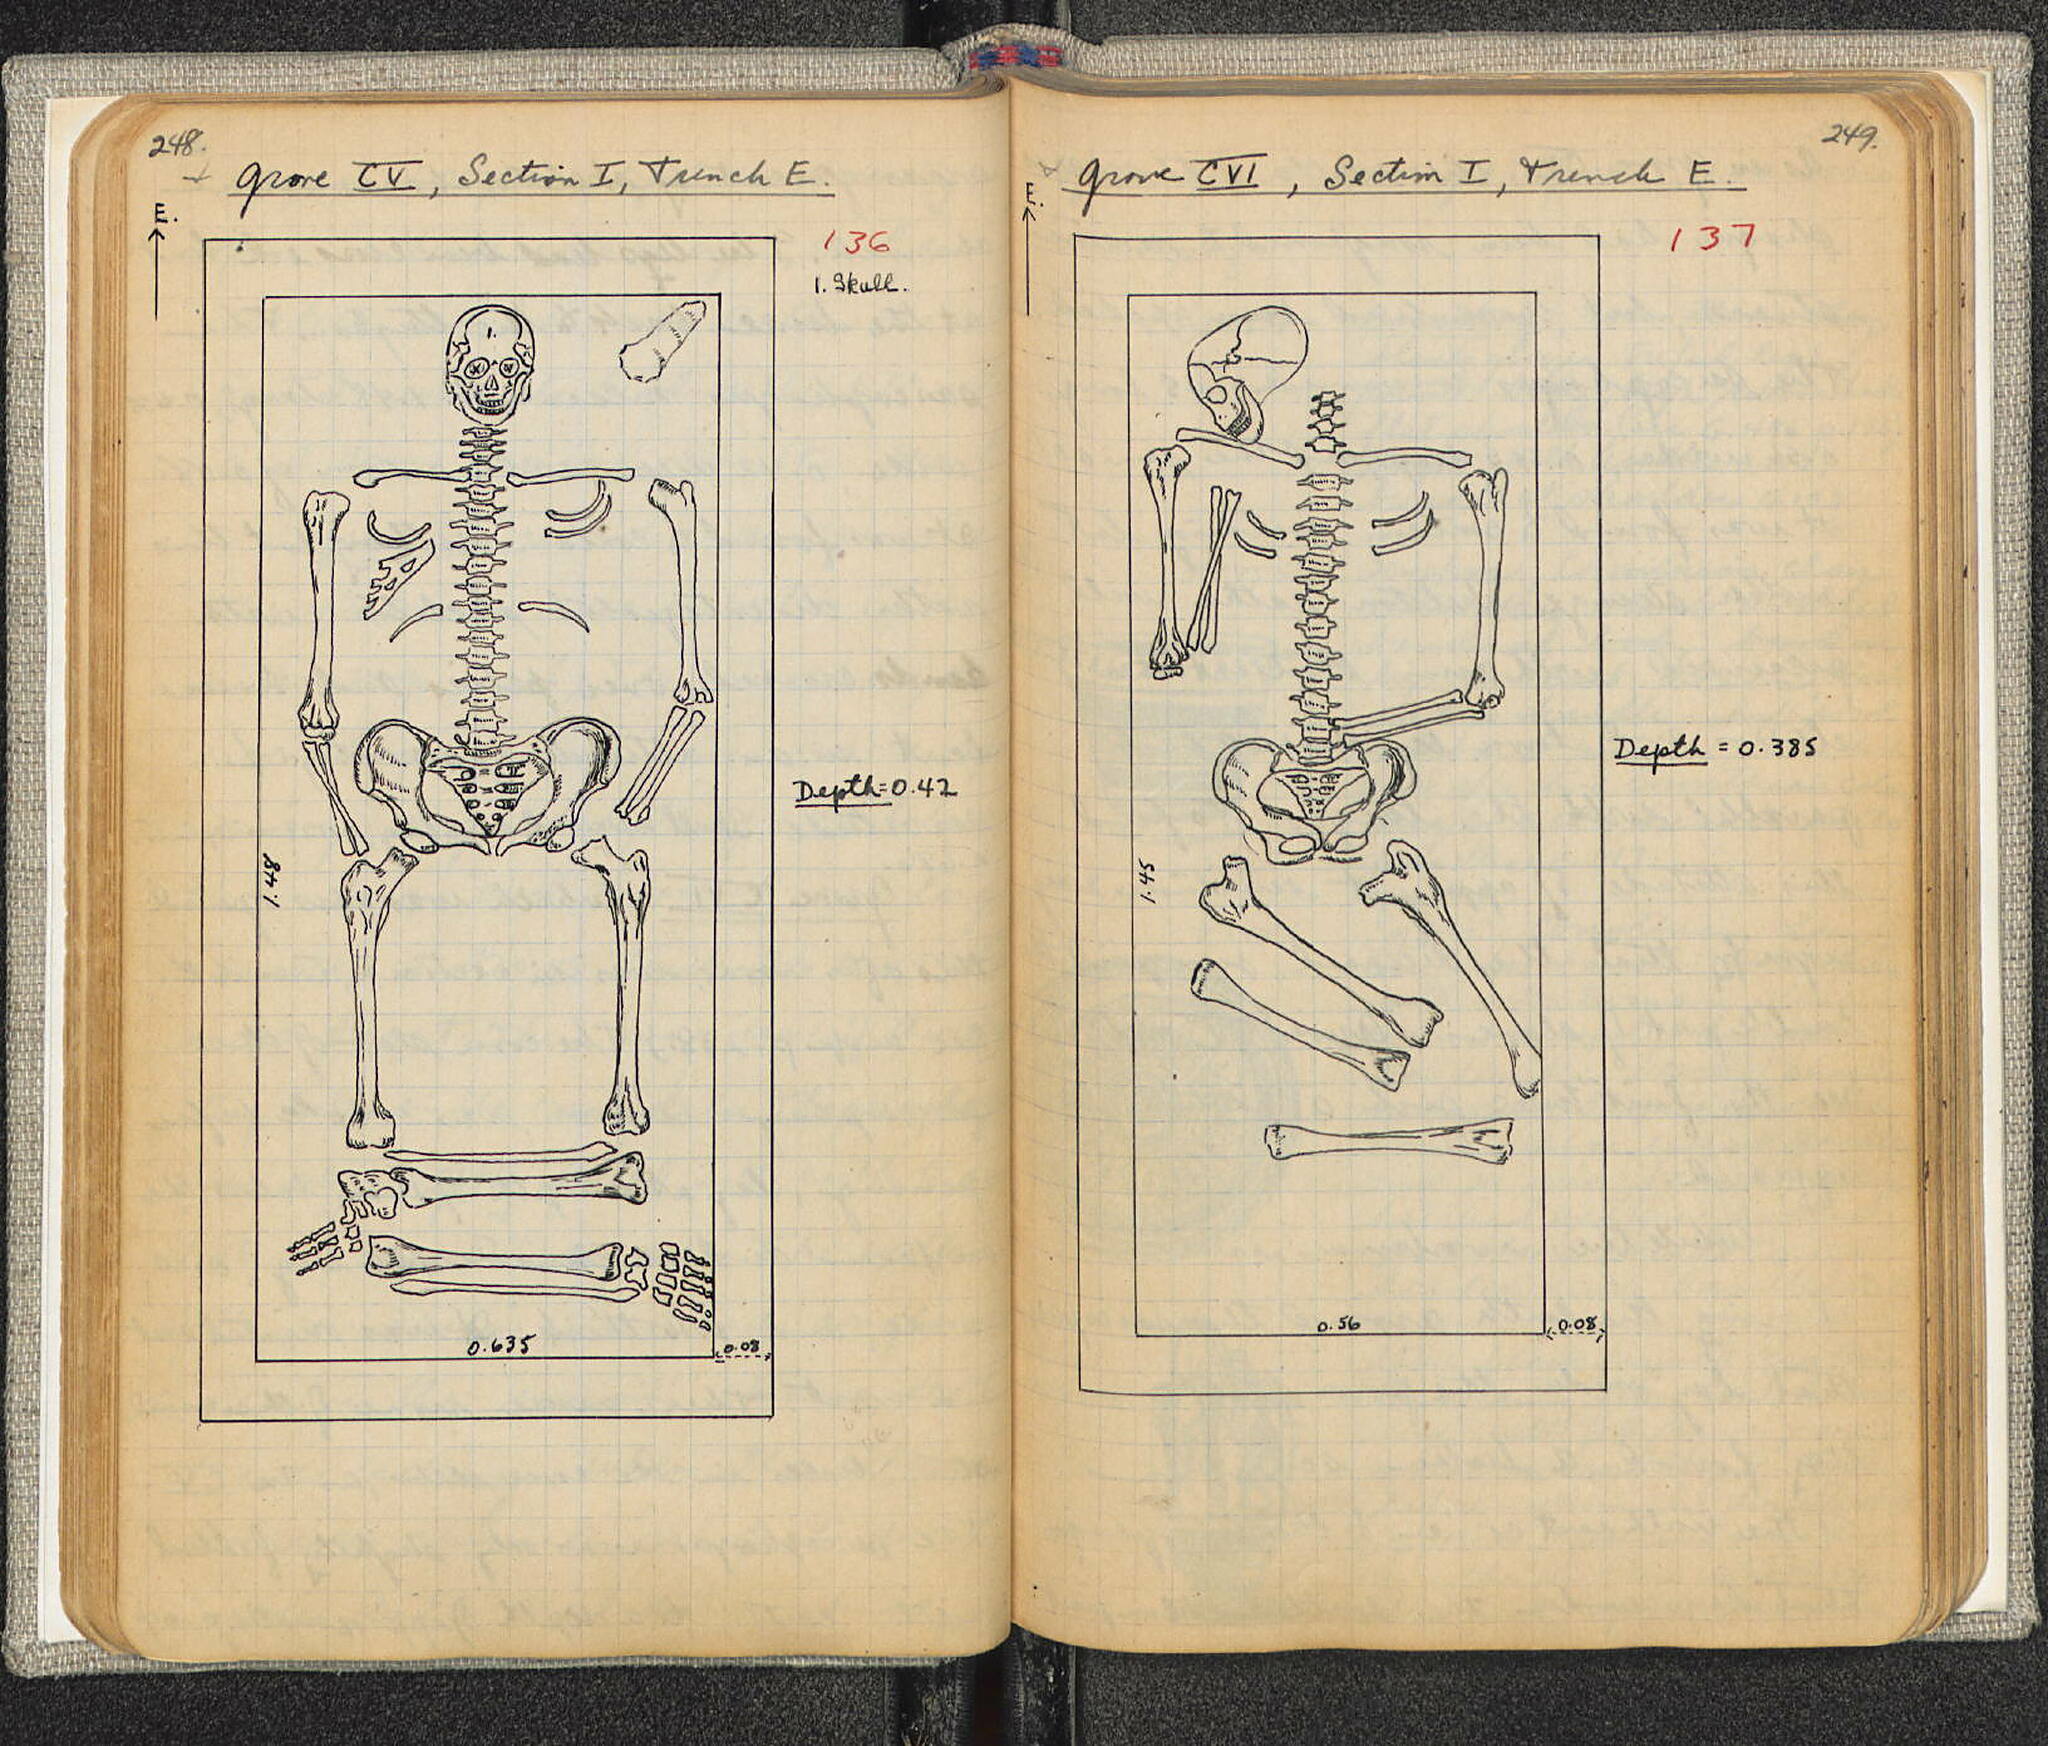 248.
Grave CV, Section I, Trench E.
E.
136
1. Skull.
1.
Depth = 0.42
1.48
0.635
0.08
249.
Grave CVI, Section I, Trench E.
E.
137
Depth = 0.385
1.45
0.56
0.08